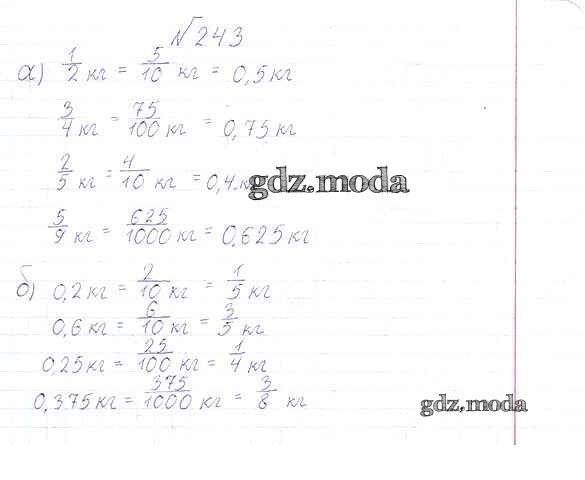 №243
а) 1/2 кг = 5/10 кг = 0,5 кг
3/4 кг = 75/100 кг = 0,75 кг
2/5 кг = 4/10 кг = 0,4 кг
gdz.moda
5/9 кг = 625/1000 кг = 0,625 кг
б) 0,2 кг = 2/10 кг = 1/5 кг
0,6 кг = 6/10 кг = 3/5 кг
0,25 кг = 25/100 кг = 1/4 кг
0,375 кг = 375/1000 кг = 3/8 кг
gdz.moda